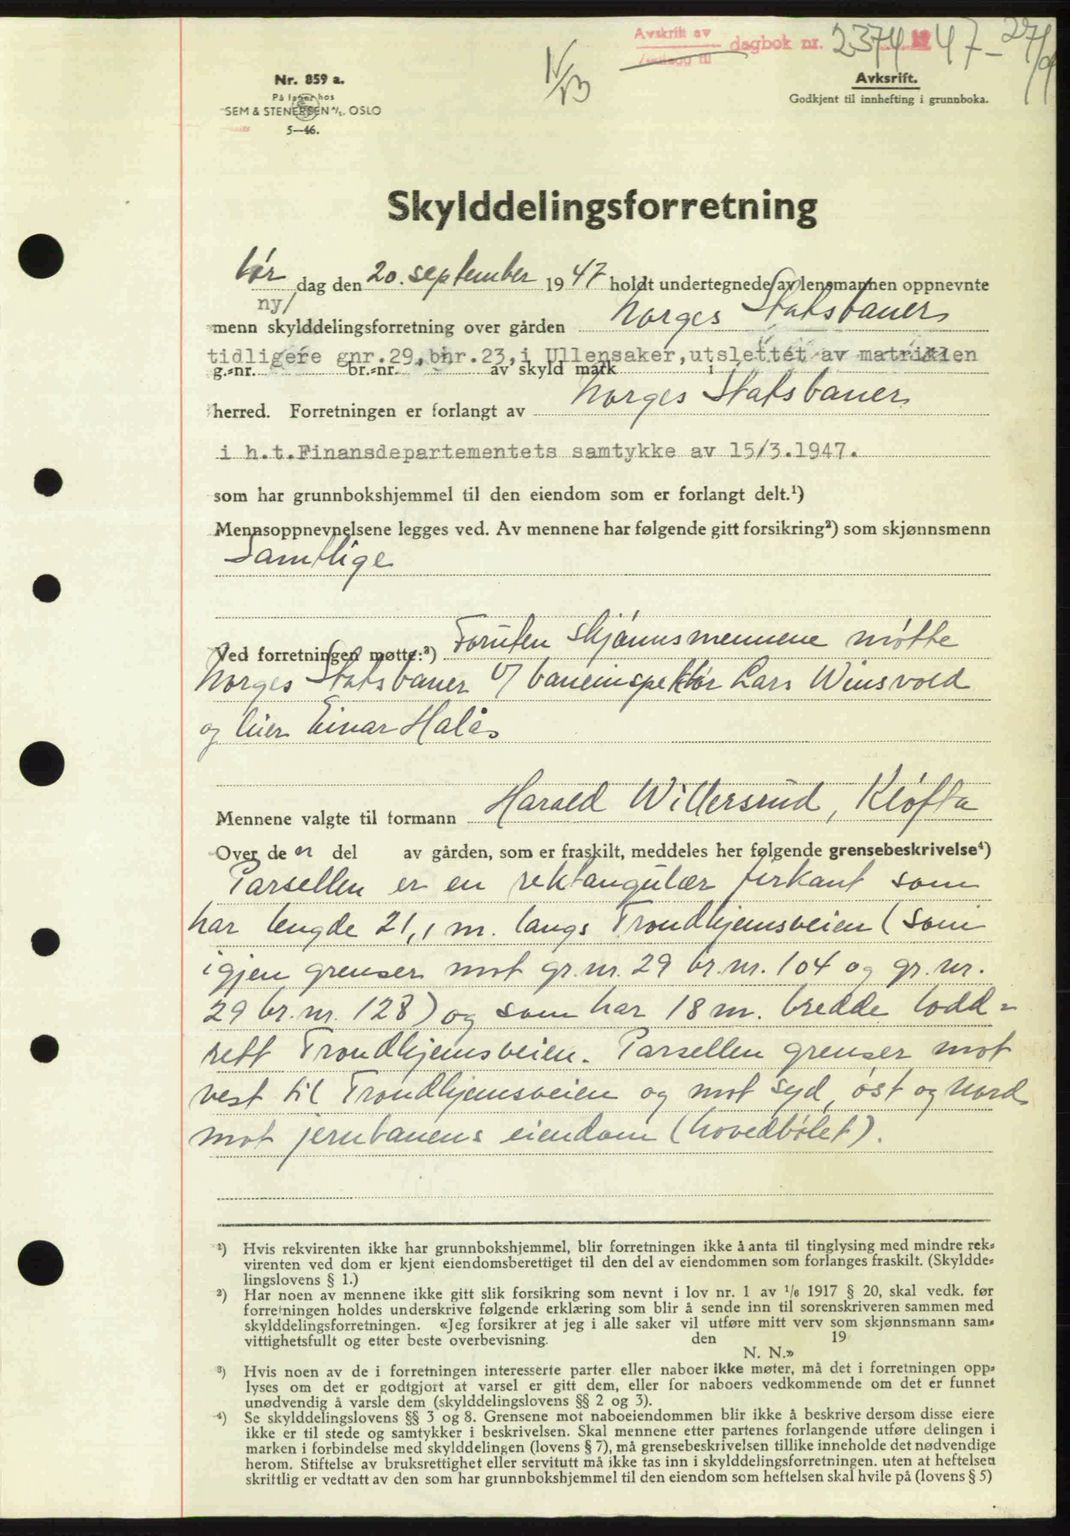 Avskrift av
dagbok nr. 2374 1947 - 27/9
Nr. 859 a.
På lager hos
SEM & STENERSEN A/S, OSLO
5—46.
Avkskrift.
Godkjent til innhefting i grunnboka.
Skylddelingsforretning
lør dag den 20. september 1947 holdt undertegnede av lensmannen oppnevnte
ny/
menn skylddelingsforretning over gården Norges Statsbaner
tidligere gnr.29,bnr.23,i Ullensaker,utslettet av matriklen
g.-nr. br.-nr. av skyld mark i
herred. Forretningen er forlangt av Norges Statsbaner
i h.t.Finansdepartementets samtykke av 15/3.1947.
som har grunnbokshjemmel til den eiendom som er forlangt delt.¹)
Mennsoppnevnelsene legges ved. Av mennene har følgende gitt forsikring²) som skjønnsmenn
Samtlige
Ved forretningen møtte:³) Foruten skjønnsmennene møtte
Norges Statsbaner v/ baneinspektør Lars Winsvold
og Einar Halås
Mennene valgte til formann Harald Willersrud, Kløfta
Over de n del av gården, som er fraskilt, meddeles her følgende grensebeskrivelse⁴)
Parsellen er en rektangulær firkant som
har lengde 21,1 m. langs Trondhjemsveien (som
igjen grenser mot gr.nr. 29 br.nr. 104 og gr.nr.
29 br.nr. 128) og som har 18 m. bredde lodd=
rett Trondhjemsveien. Parsellen grenser mot
vest til Trondhjemsveien og mot syd, øst og nord
mot jernbanens eiendom (hovedbølet).
¹) Hvis rekvirenten ikke har grunnbokshjemmel, blir forretningen ikke å anta til tinglysing med mindre rek-
virenten ved dom er kjent eiendomsberettiget til den del av eiendommen som forlanges fraskilt. (Skyldde-
lingslovens § 1.)
²) Har noen av mennene ikke gitt slik forsikring som nevnt i lov nr. 1 av 1/6 1917 § 20, skal vedk. før
forretningen holdes underskrive følgende erklæring som blir å sende inn til sorenskriveren sammen med
skylddelingsforretningen. «Jeg forsikrer at jeg i alle saker vil utføre mitt verv som skjønnsmann sam-
vittighetsfullt og etter beste overbevisning. den 19
N. N.»
³) Hvis noen av de i forretningen interesserte parter eller naboer ikke møter, må det i forretningen opp-
lyses om det er godtgjort at varsel er gitt dem, eller for naboers vedkommende om det er funnet
unødvendig å varsle dem (skylddelingslovens §§ 2 og 3).
⁴) Se skylddelingslovens §§ 3 og 8. Grensene mot naboeiendommen blir ikke å beskrive dersom disse eiere
ikke er til stede og samtykker i beskrivelsen. Skal mennene etter partenes forlangende utføre delingen i
marken i forbindelse med skylddelingen (lovens § 7), må grensebeskrivelsen tillike inneholde det nødvendige
herom. Stiftelse av bruksrettighet eller servitutt må ikke tas inn i skylddelingsforretningen. uten at heftelsen
skriftlig er vedtatt av den som har grunnbokshjemmel til den eiendom som heftelsen skal hvile på (lovens § 5)